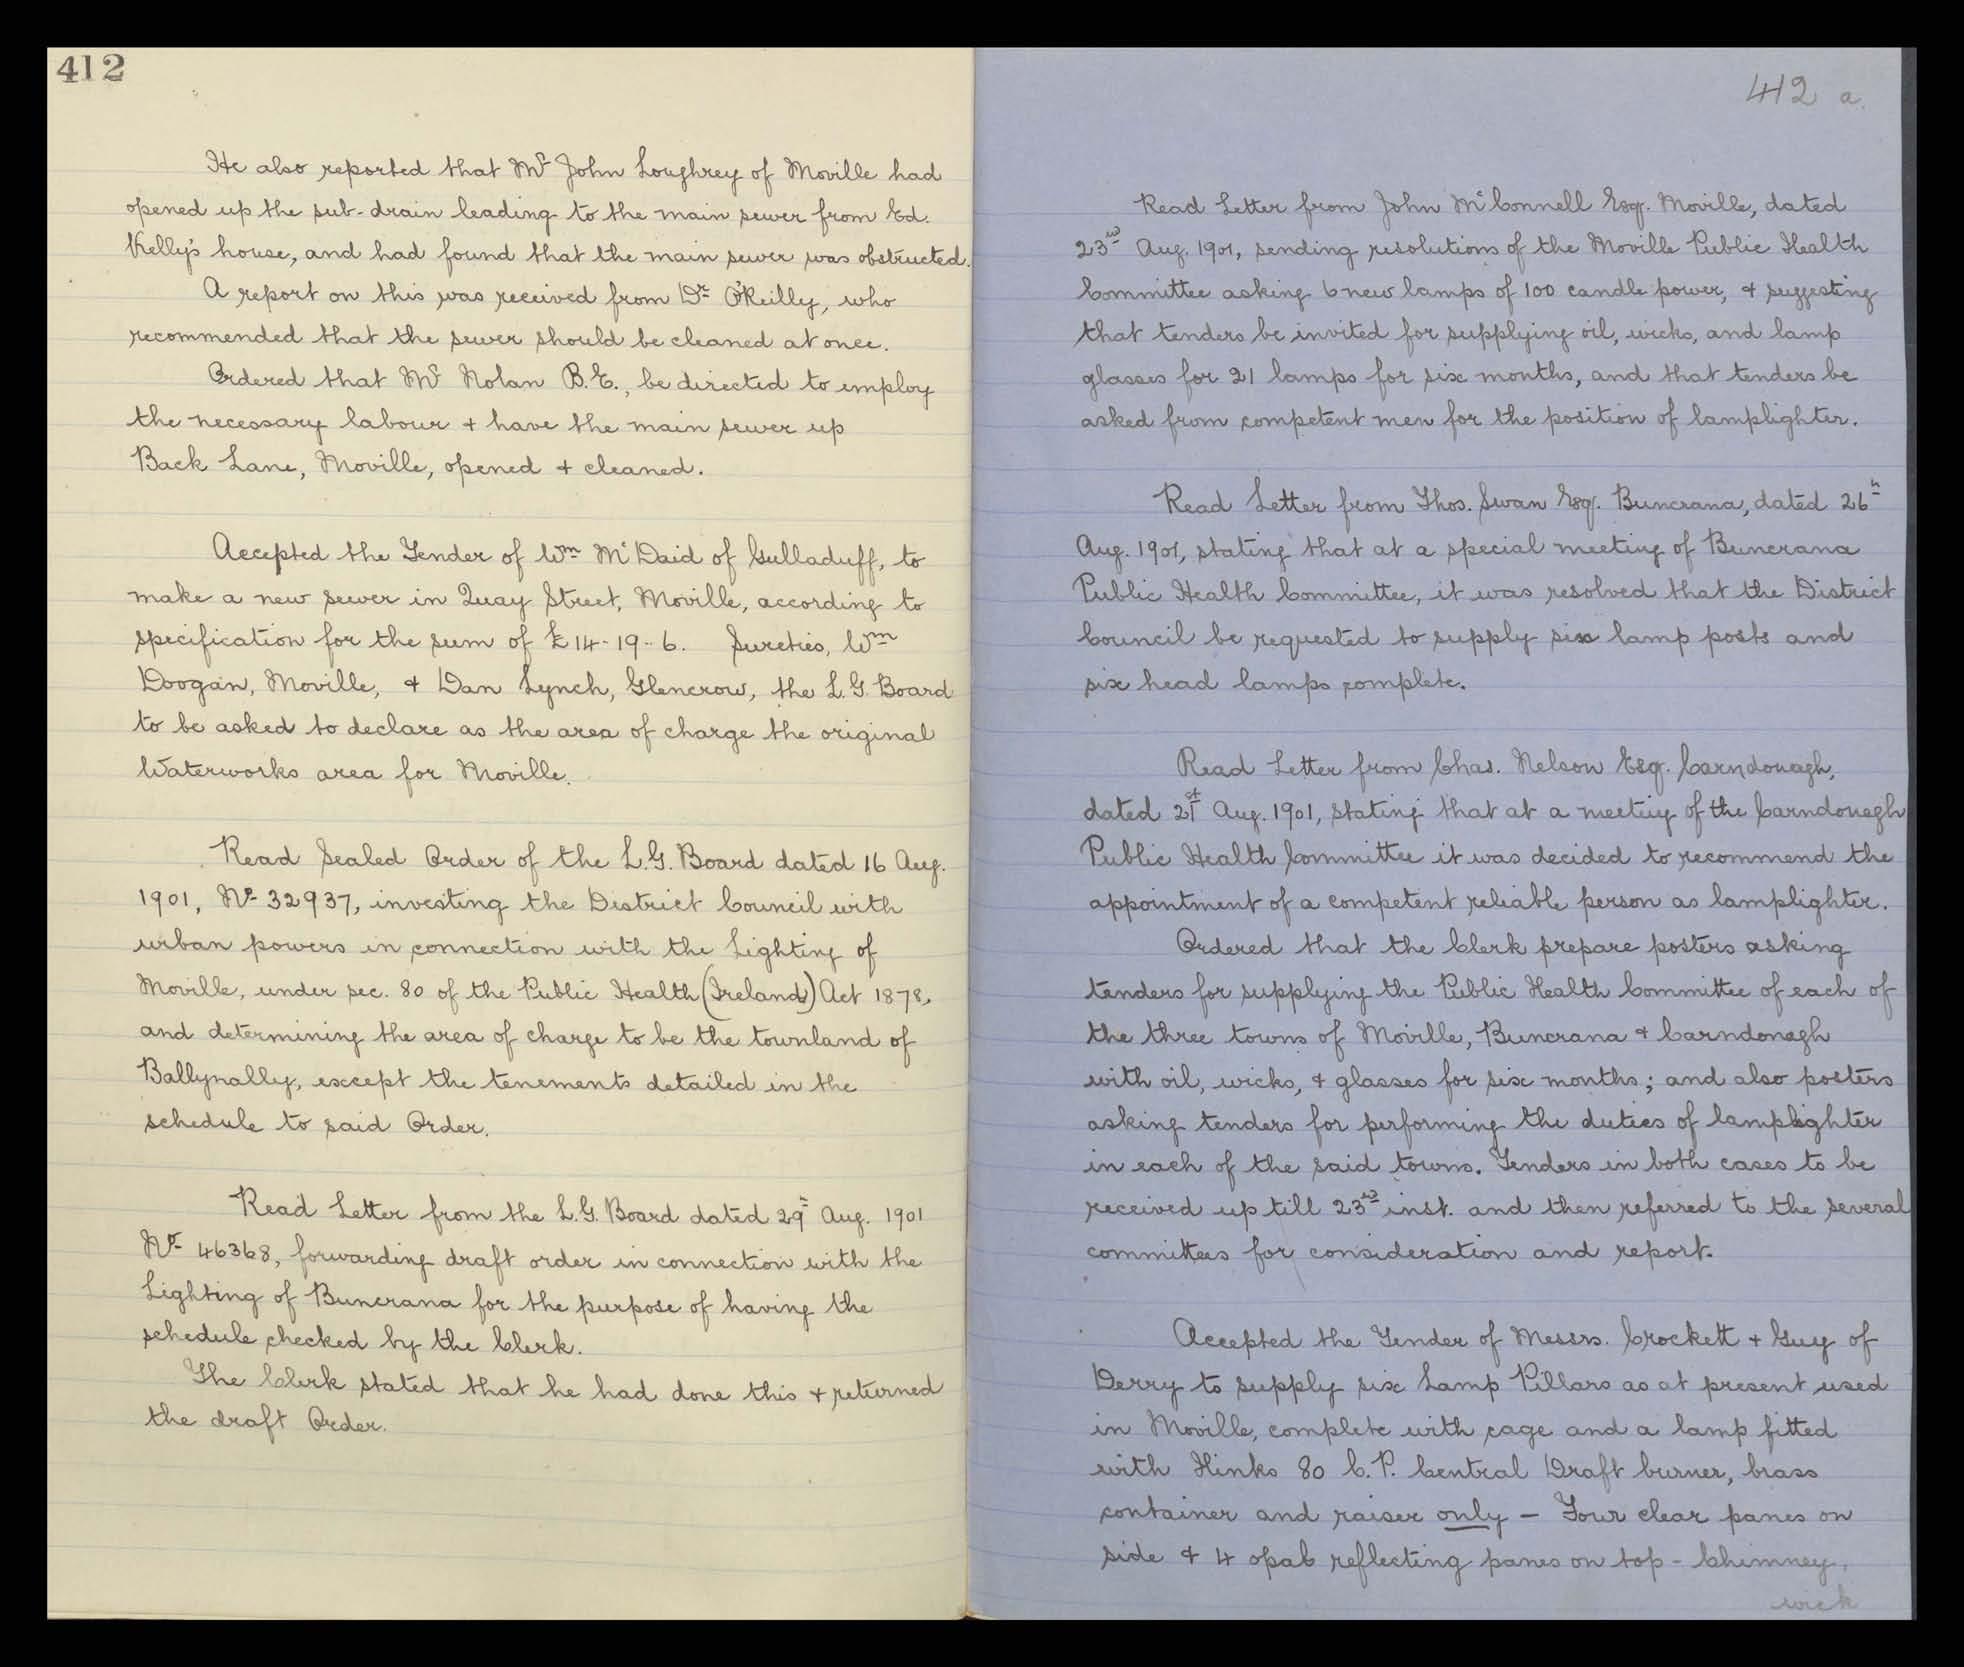 412
He also reported that Mr John Loughrey of Moville had
opened up the sub-drain leading to the main sewer from Ed.
Kelly's house, and had found that the main sewer was obstructed.
A report on this was received from Dr O'Reilly, who
recommended that the sewer should be cleaned at once.
Ordered that Mr Nolan B.E., be directed to employ
the necessary labour + have the main sewer up
Back Lane, Moville, opened + cleaned.
Accepted the Tender of Wm McDaid of Gulladuff, to
make a new sewer in Quay Street, Moville, according to
specification for the sum of £14-19-6. Sureties, Wm
Doogan, Moville, + Dan Lynch, Glencrow, the L.G. Board
to be asked to declare as the area of charge the original
Waterworks area for Moville.
Read Sealed Order of the L.G. Board dated 16 Aug.
1901, No 32937, investing the District Council with
urban powers in connection with the Lighting of
Moville, under sec. 80 of the Public Health (Ireland) Act 1878,
and determining the area of charge to be the townland of
Ballynally, except the tenements detailed in the
schedule to said Order.
Read Letter from the L.G. Board dated 29th Aug. 1901
No 46368, forwarding draft order in connection with the
Lighting of Buncrana for the purpose of having the
schedule checked by the Clerk.
The Clerk stated that he had done this + returned
the draft Order.
412 a.
Read Letter from John McConnell Esq. Moville, dated
23rd Aug. 1901, sending resolutions of the Moville Public Health
Committee asking 6 new lamps of 100 candle power, + suggesting
that tenders be invited for supplying oil, wicks, and lamp
glasses for 21 lamps for six months, and that tenders be
asked from competent men for the position of lamplighter.
Read Letter from Thos. Swan Esq. Buncrana, dated 26th
Aug. 1901, stating that at a special meeting of Buncrana
Public Health Committee, it was resolved that the District
Council be requested to supply six lamp posts and
six head lamps complete.
Read Letter from Chas. Nelson Esq. Carndonagh,
dated 21st Aug. 1901, stating that at a meeting of the Carndonagh
Public Health Committee it was decided to recommend the
appointment of a competent reliable person as lamplighter.
Ordered that the Clerk prepare posters asking
tenders for supplying the Public Health Committee of each of
the three towns of Moville, Buncrana + Carndonagh
with oil, wicks, + glasses for six months; and also posters
asking tenders for performing the duties of lamplighter
in each of the said towns. Tenders in both cases to be
received up till 23rd inst. and then referred to the several
committees for consideration and report.
Accepted the Tender of Messrs. Crockett + Guy of
Derry to supply six Lamp Pillars as at present used
in Moville, complete with cage and a lamp fitted
with Hinks 80 C.P. Central Draft burner, brass
container and raiser only - Four clear panes on
side + 4 opal reflecting panes on top - Chimney,
wick